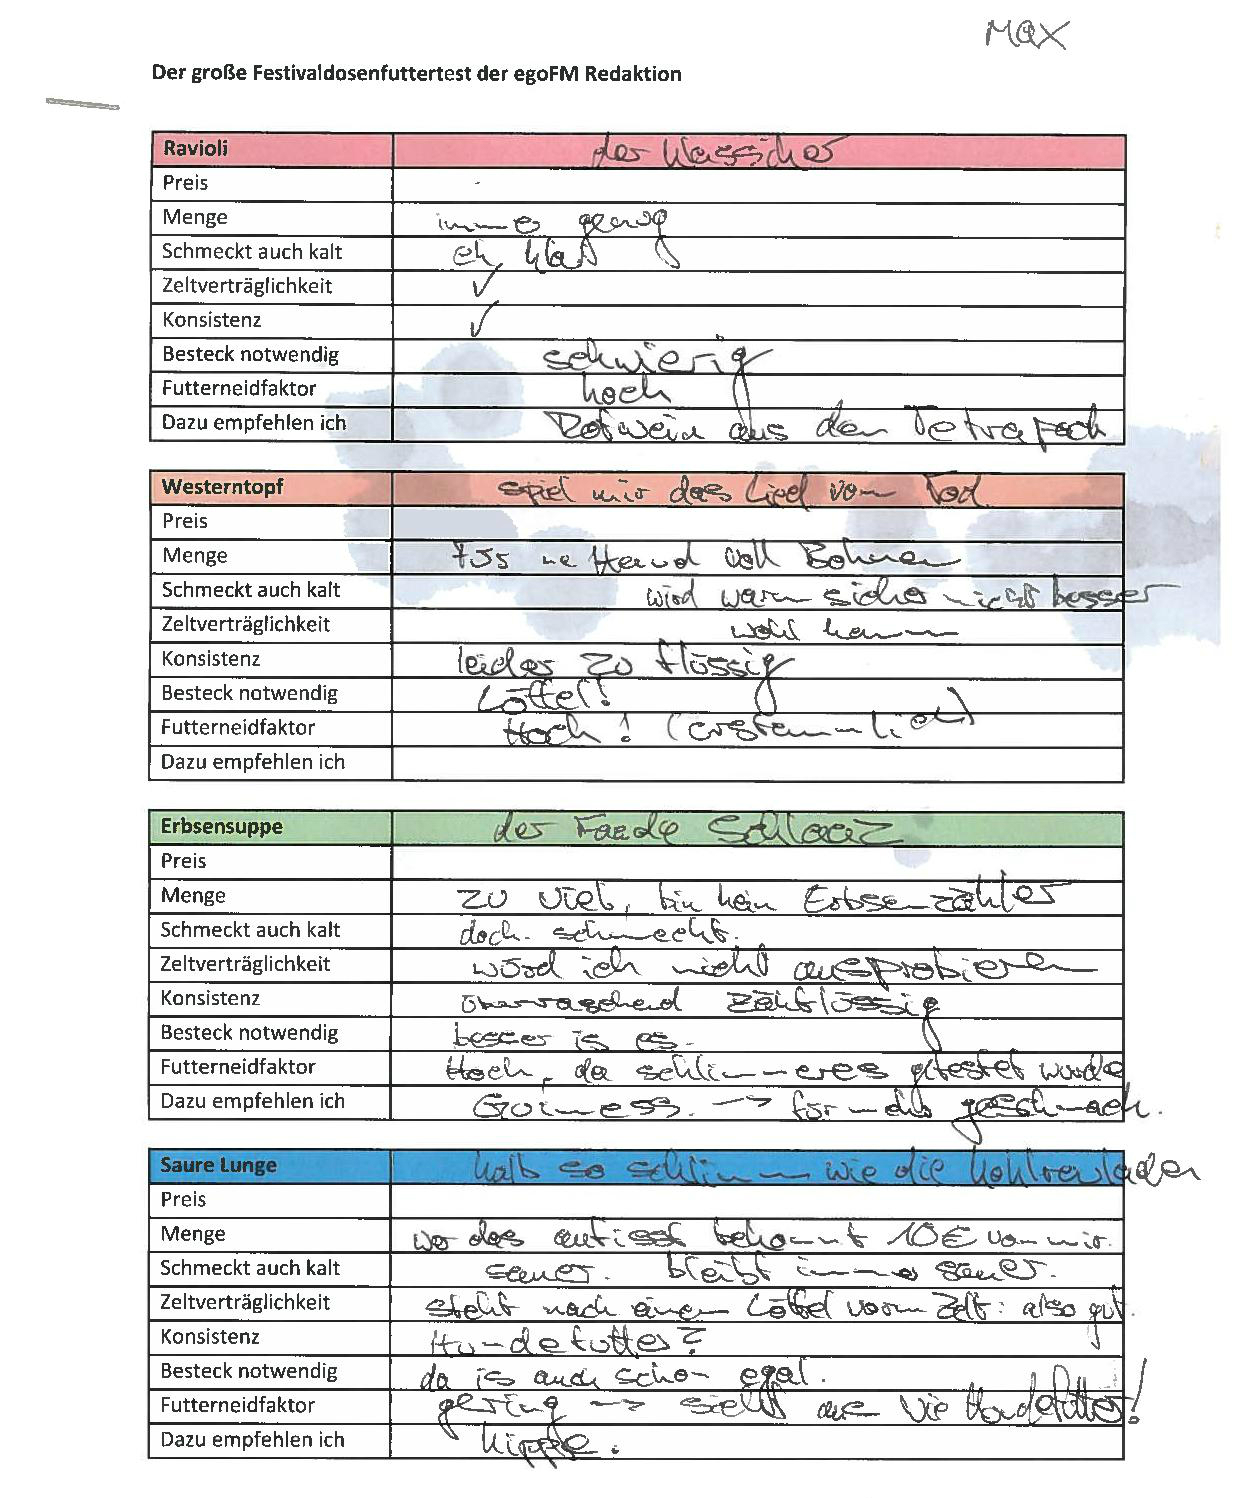 Max
Der große Festivaldosenfuttertest der egoFM Redaktion
Ravioli der Klassiker
Preis -
Menge immer genug
Schmeckt auch kalt eh klar
Zeltverträglichkeit ✓
Konsistenz ✓
Besteck notwendig schwierig
Futterneidfaktor hoch
Dazu empfehlen ich Rotwein aus dem Tetrapack
Westerntopf spiel mir das Lied vom Tod
Preis
Menge ne Hand voll Bohnen
Schmeckt auch kalt wird warm sicher nicht besser
Zeltverträglichkeit wohl kaum
Konsistenz leider zu flüssig
Besteck notwendig Löffel!
Futterneidfaktor Hoch! (erstaunlich)
Dazu empfehlen ich
Erbsensuppe der
Preis
Menge zu viel, bin kein Erbsenzähler
Schmeckt auch kalt doch. schmeckt.
Zeltverträglichkeit würd ich nicht ausprobieren
Konsistenz überraschend zähflüssig
Besteck notwendig besser is es.
Futterneidfaktor Hoch, da schlimmeres getestet wurde
Dazu empfehlen ich Guiness. → für mehr geschmack.
Saure Lunge halb so schlimm wie die Kohlrouladen
Preis
Menge wer das aufisst bekommt 10€ von mir.
Schmeckt auch kalt sauer. bleibt immer sauer.
Zeltverträglichkeit steht nach einem Löffel vorm Zelt: also gut.
Konsistenz Hundefutter?
Besteck notwendig da is auch schon egal.
Futterneidfaktor gering → sieht aus wie Hundefutter!
Dazu empfehlen ich Kippe.